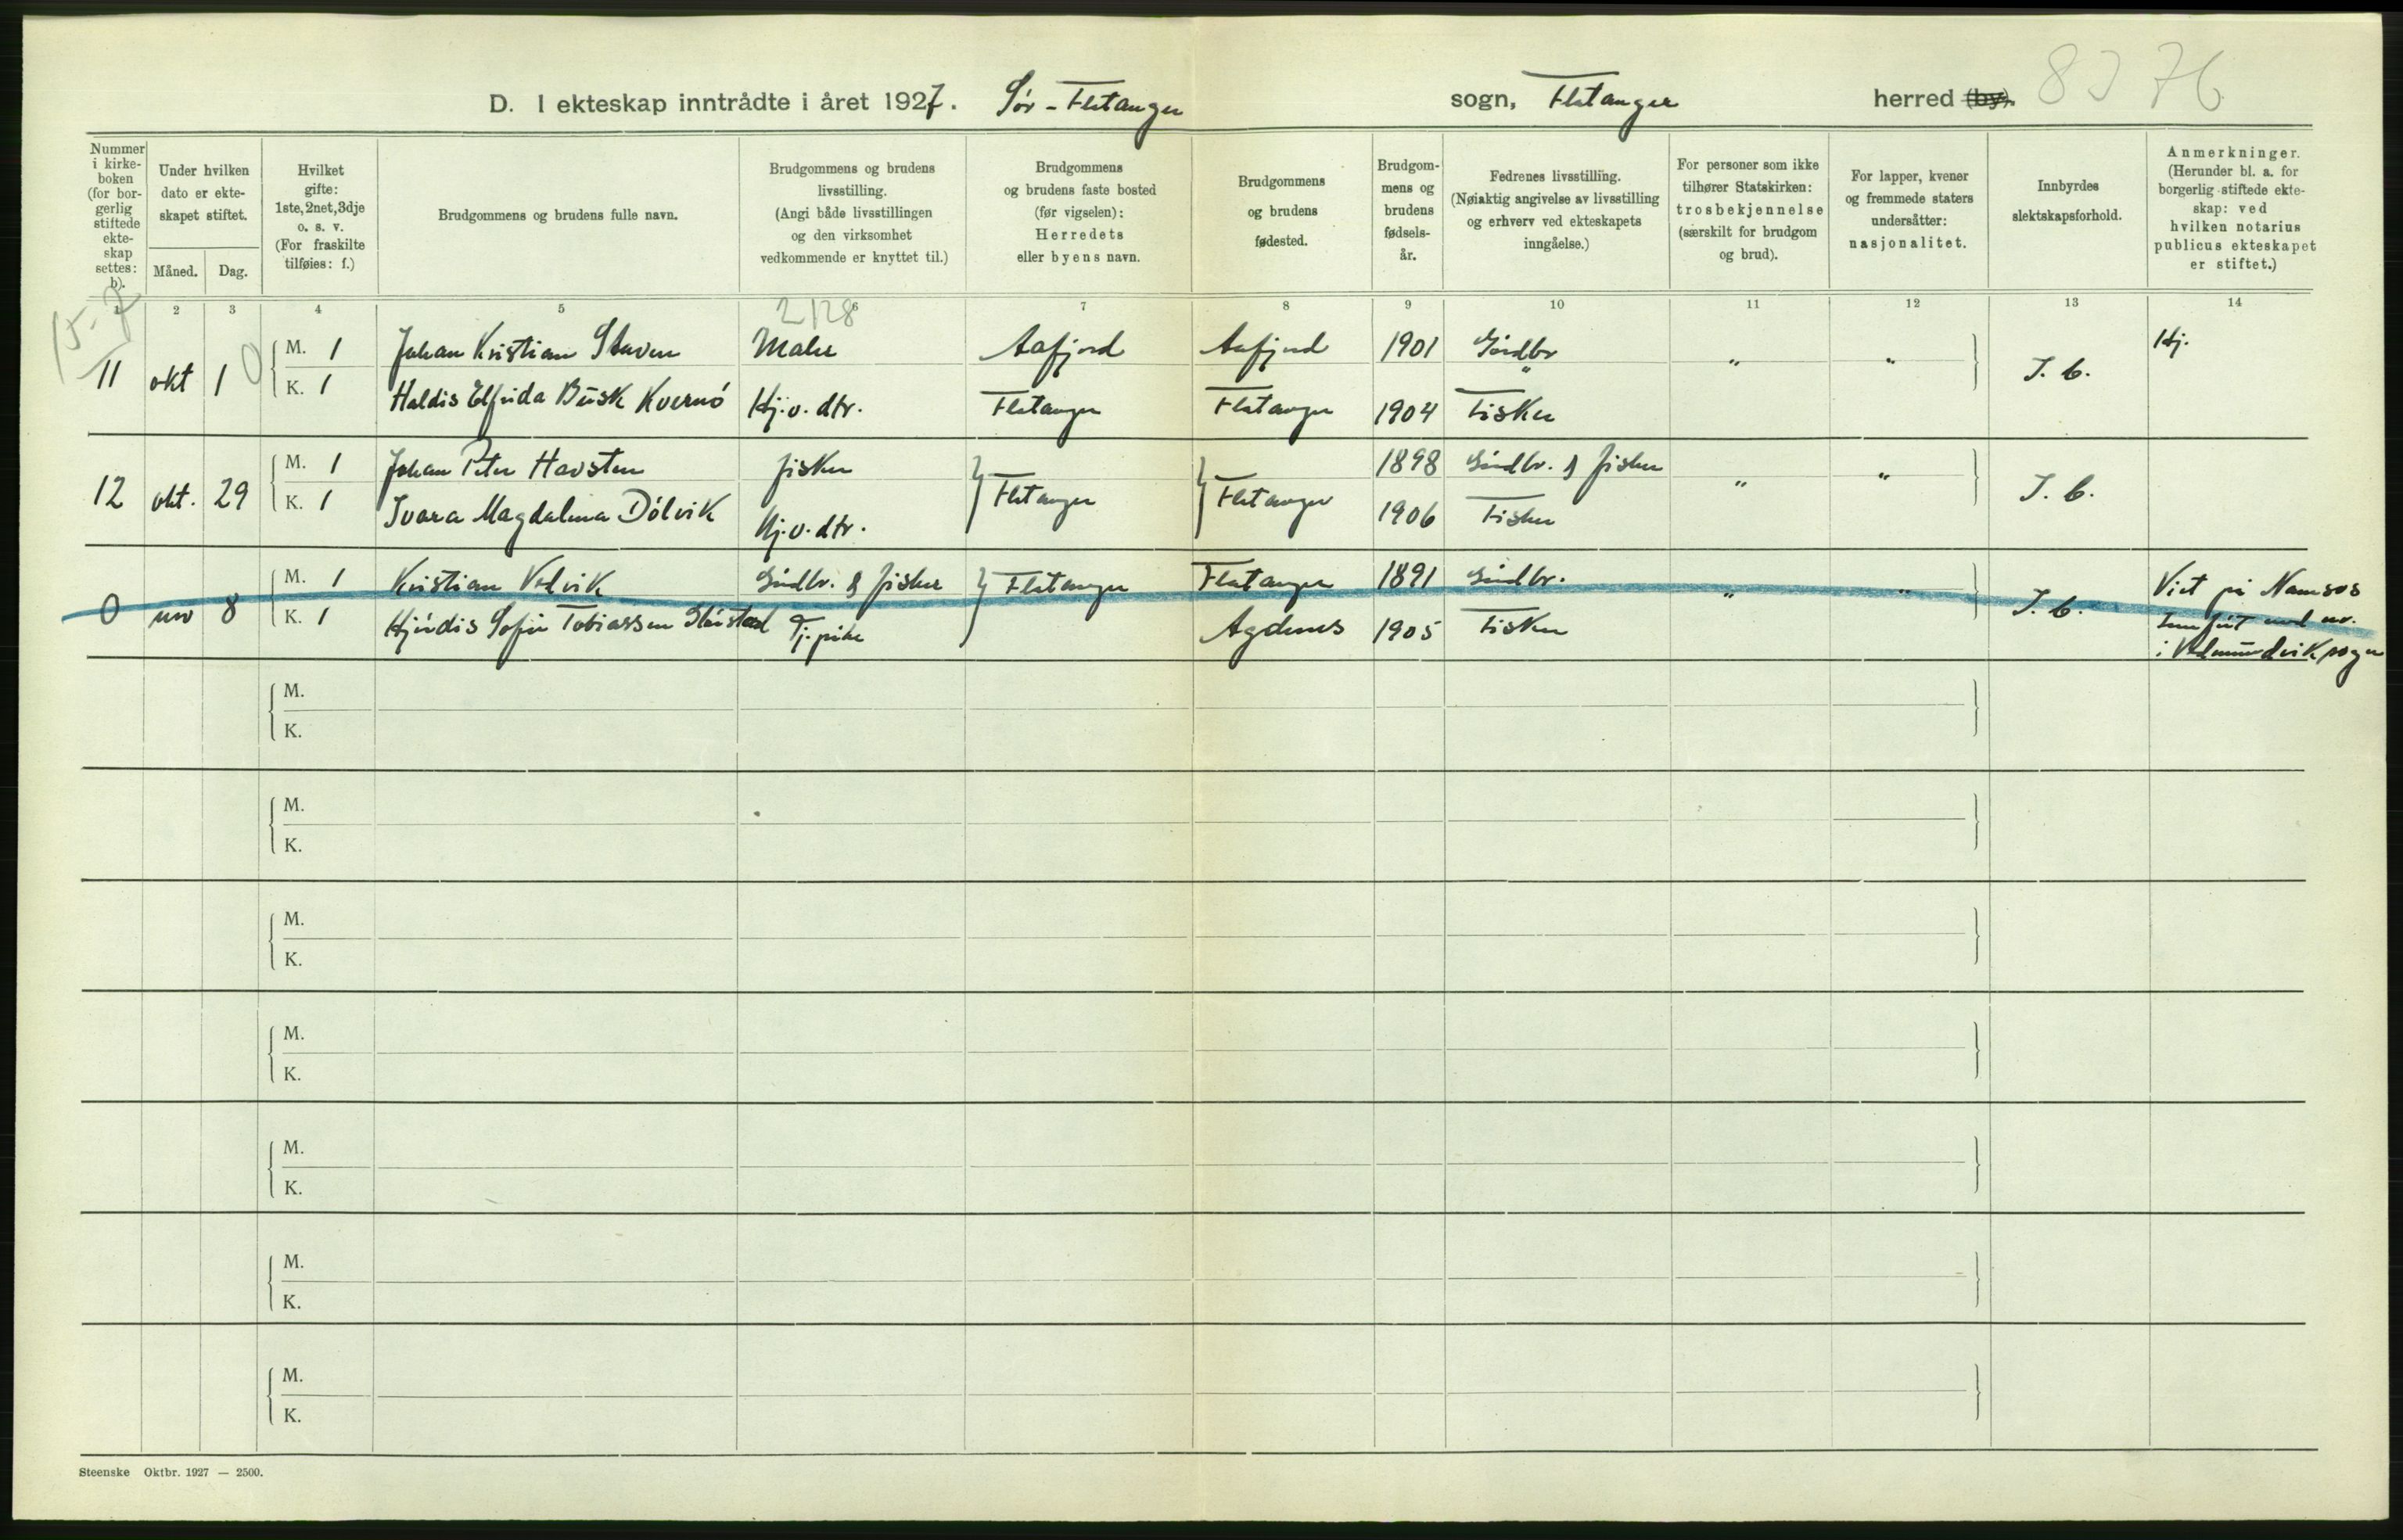 D. I ekteskap inntrådte i året 1927. Sør-Flatanger sogn, Flatanger herred (by).
Nummer i kirkeboken (for borgerlig stiftede ekteskap settes: b).
Under hvilken dato er ekteskapet stiftet.
Måned. Dag.
Hvilket gifte: 1ste, 2net, 3dje o. s. v. (For fraskilte tilføies: f.)
Brudgommens og brudens fulle navn.
Brudgommens og brudens livsstilling. (Angi både livsstillingen og den virksomhet vedkommende er knyttet til.)
Brudgommens og brudens faste bosted (før vigselen): Herredets eller byens navn.
Brudgommens og brudens fødested.
Brudgommens og brudens fødselsår.
Fedrenes livsstilling. (Nøiaktig angivelse av livsstilling og erhverv ved ekteskapets inngåelse.)
For personer som ikke tilhører Statskirken: trosbekjennelse (særskilt for brudgom og brud).
For lapper, kvener og fremmede staters undersåtter: nasjonalitet.
Innbyrdes slektskapsforhold.
Anmerkninger. (Herunder bl. a. for borgerlig stiftede ekteskap: ved hvilken notarius publicus ekteskapet er stiftet.)
1 2 3 4 5 6 7 8 9 10 11 12 13 14
15-7 2128
M. 1 Johan Kristian Staven Maler Aafjord Aafjord 1901 Gårdbr Hj.
11 okt 1 0 " " " I. b.
K. 1 Haldis Elfrida Busk Kvernö Hj.v. dtr. Flatanger Flatanger 1904 Fisker
M. 1 Johan Peter Havsten fisker 1898 Gårdbr. & fisker
12 okt. 29 Flatanger Flatanger " " I. b.
K. 1 Ivara Magdalena Dölvik Hj.v. dtr. 1906 Fisker
M. 1 Kristian Vedvik Gårdbr. & fisker Flatanger Flatanger 1891 Gårdbr. Viet på Namsos
0 nov 8 " " I. b. Innført med nr.
K. 1 Hjördis Sofie Tobiassen Tj.pike Agdenes 1905 Fisker i Vedmundvik sogn
M.
K.
M.
K.
M.
K.
M.
K.
M.
K.
M.
K.
M.
K.
Steenske Oktbr. 1927 — 2500.